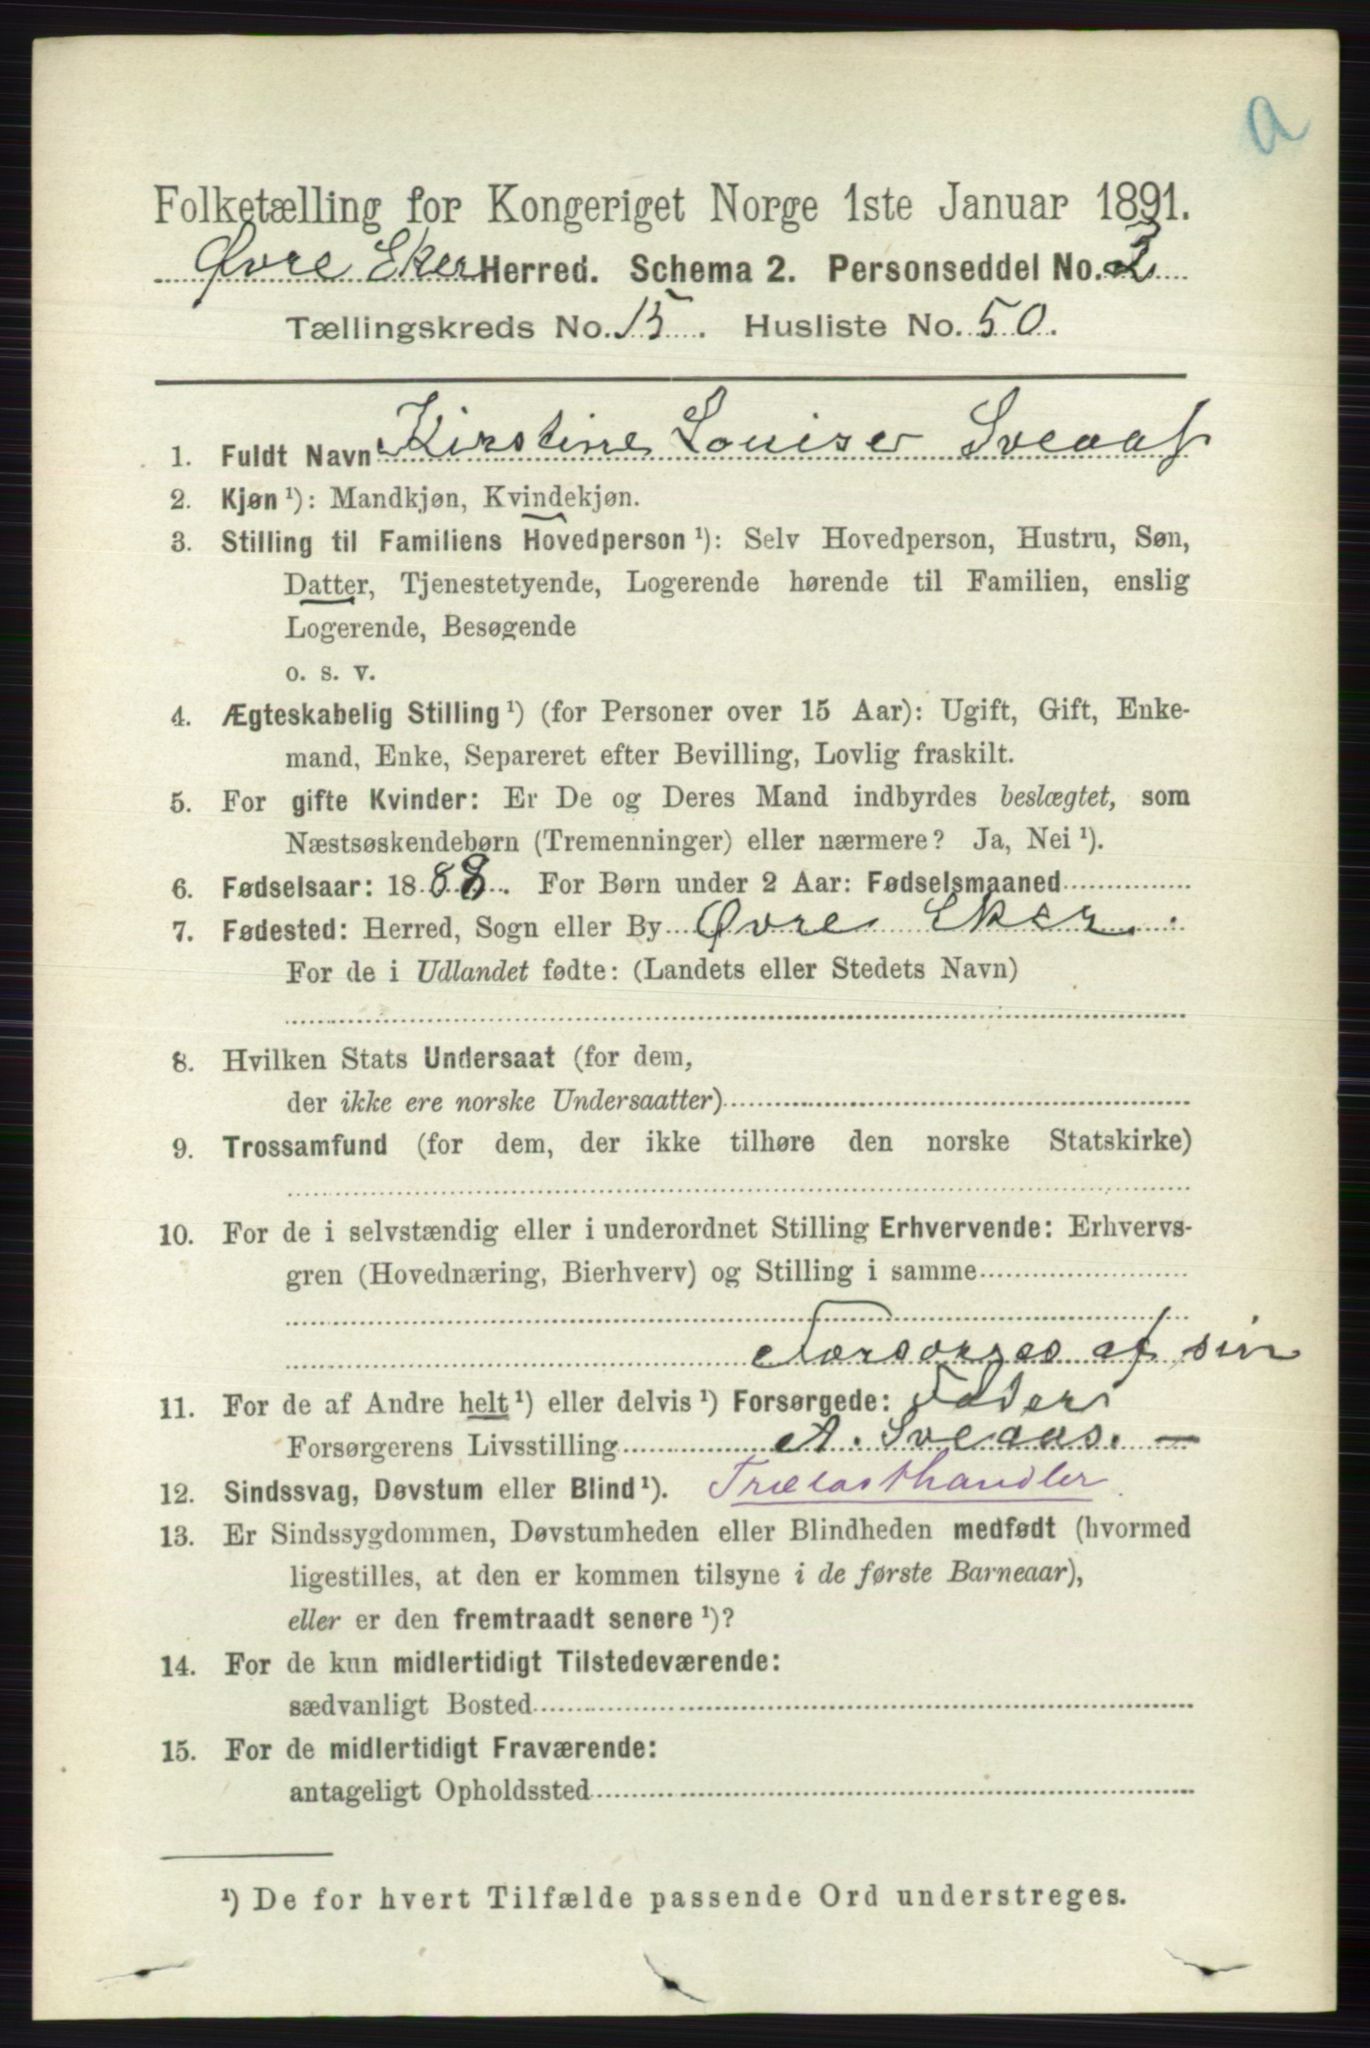 a
Folketælling for Kongeriget Norge 1ste Januar 1891.
Øvre Eker Herred. Schema 2. Personseddel No. 3
Tællingskreds No. 15. Husliste No. 50.
1. Fuldt Navn Kirstine Louise Sveaas
2. Kjøn ¹): Mandkjøn, Kvindekjøn.
3. Stilling til Familiens Hovedperson ¹): Selv Hovedperson, Hustru, Søn,
Datter, Tjenestetyende, Logerende hørende til Familien, enslig
Logerende, Besøgende
o. s. v.
4. Ægteskabelig Stilling ¹) (for Personer over 15 Aar): Ugift, Gift, Enke-
mand, Enke, Separeret efter Bevilling, Lovlig fraskilt.
5. For gifte Kvinder: Er De og Deres Mand indbyrdes beslægtet, som
Næstsøskendebørn (Tremenninger) eller nærmere? Ja, Nei ¹).
6. Fødselsaar: 1888. For Børn under 2 Aar: Fødselsmaaned
7. Fødested: Herred, Sogn eller By Øvre Eker.
For de i Udlandet fødte: (Landets eller Stedets Navn)
8. Hvilken Stats Undersaat (for dem,
der ikke ere norske Undersaatter)
9. Trossamfund (for dem, der ikke tilhøre den norske Statskirke)
10. For de i selvstændig eller i underordnet Stilling Erhvervende: Erhvervs-
gren (Hovednæring, Bierhverv) og Stilling i samme
Forsørges af sin
11. For de af Andre helt ¹) eller delvis ¹) Forsørgede: Fader
Forsørgerens Livsstilling A. Sveaas. —
12. Sindssvag, Døvstum eller Blind ¹). Trælasthandler.
13. Er Sindssygdommen, Døvstumheden eller Blindheden medfødt (hvormed
ligestilles, at den er kommen tilsyne i de første Barneaar),
eller er den fremtraadt senere ¹)?
14. For de kun midlertidigt Tilstedeværende:
sædvanligt Bosted
15. For de midlertidigt Fraværende:
antageligt Opholdssted
¹) De for hvert Tilfælde passende Ord understreges.